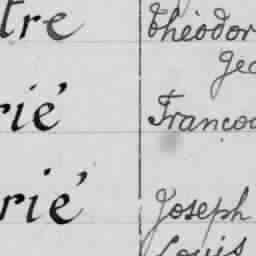 tre Théodor
Geo
rié Francoo
rié Joseph
Louis